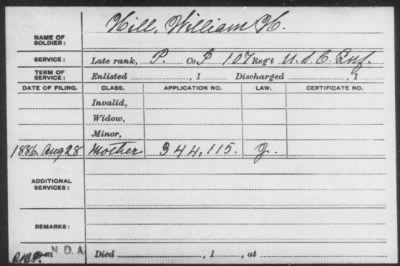 NAME OF SOLDIER: Hill, William H.
SERVICE: Late rank, P. Co. 107 Reg't U.S.C. Inf.
TERM OF SERVICE: Enlisted , 1 Discharged , 1
DATE OF FILING. CLASS. APPLICATION NO. LAW. CERTIFICATE NO.
Invalid,
Widow,
Minor,
1886 Aug 28 Mother 344,115.
ADDITIONAL SERVICES:
REMARKS:
N D A
Died , 1 , at